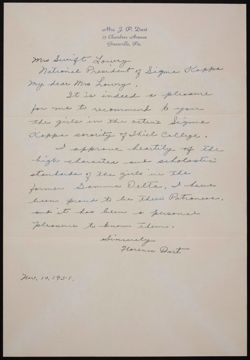 Mrs J. P. Dart
Greenville, Pa.
Mrs Swift Lowry
National President of Sigma Kappa
My dear Mrs Lowry,
It is indeed a pleasure
for me to recommend to you
the girls in the active Sigma
Kappa sorority of Thiel College.
I approve heartily of the
high character and scholastic
standards of the girls in the
former Gamma Delta. I have
been proud to be their Patroness,
and it has been a personal
pleasure to know them.
Sincerely
Florence Dart
Nov. 10, 1951.